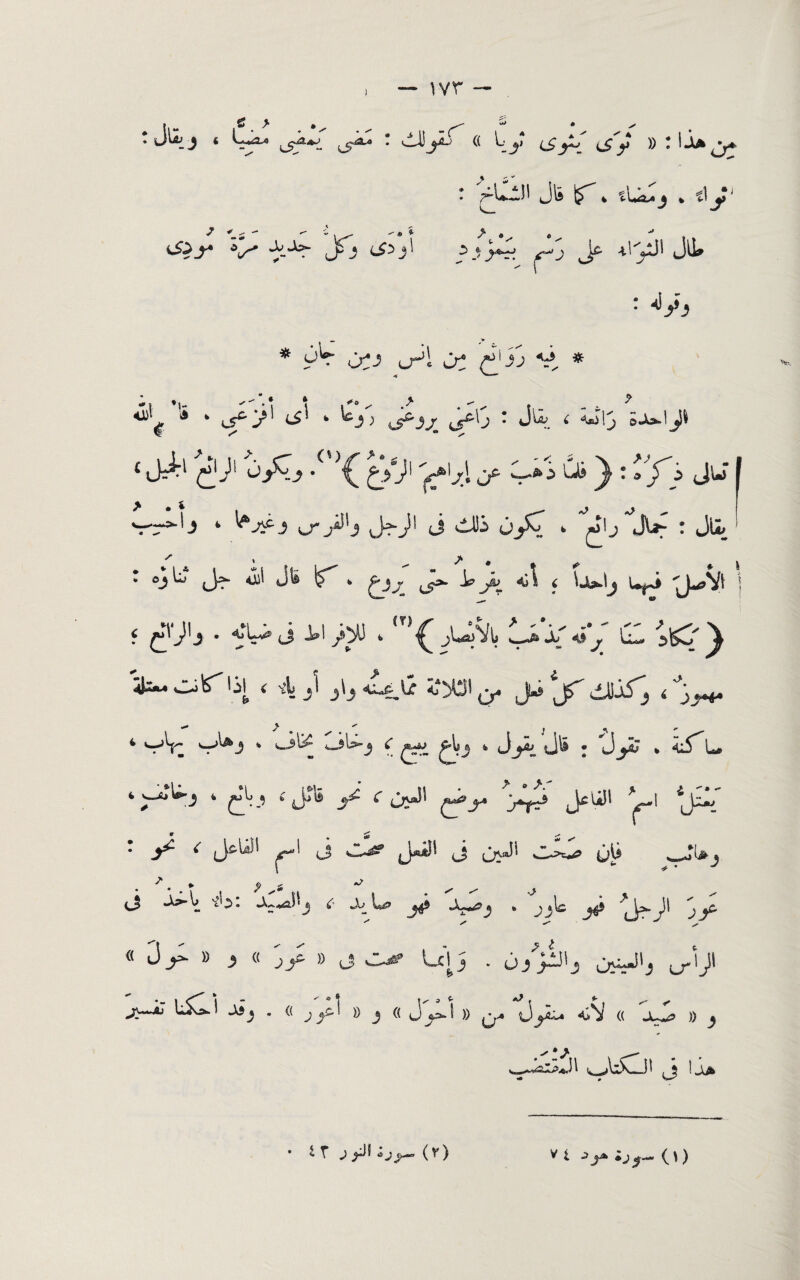 — ١٧٣ —
من هذا : « ثَوَى يَثْوِى ثويا » كقولك : مضى يَمْضِى مُضِيًّا ، ويقال :
ثواء ، ومَضَاء ، كما قال الشَّمَّاخُ :
طال الثواء على رَسْمٍ بِيَمْؤُودِ أَوْدَى وكلُّ جديد مرةً مُودِى
وقوله :
* فيه رَوَائِعُ من إنْسٍ ومن جَانِ *
الواحدة رائعة ، يقال : رَاعَنِى يروعنى رَوْعًا ، أى أفْزعنى ، قال الله
تعالى ذِكْرُه : ﴿ فلما ذهب عن إبراهيمَ الرَّوْعُ ﴾(١) . ويكونُ الرائعُ الجميلَ ،
يقال : جمالٌ رائعٌ ، يكونُ ذلك فى الرجل والفرس وغيرهما ، وأحسب
الأصلَ فيهما واحدا ، أنه يُفْرِطُ حتى يَرُوعَ ، كما قال الله جل ثناؤه :
﴿ يكادُ سَنا بَرْقِهِ يَذْهَبُ بالأبصار ﴾(٢) ، للإفراط فى ضيائه . والرائعُ ،
مهموز ، وكذلك كلُّ فعل من الثلاثة مما عينه واو أو ياء ، إذا كانت معتلة
ساكنة ، تقول : قال يقول ، وباع يبيع ، وخاف يخاف ، وهاب يهاب ،
يَعْتَلُّ اسم الفاعل فيُهْمَزُ موضع العين ، نحو قائل ، وبائع ، وخائف ،
وهائب فإن صَحَّت العين فى الفعل صحت فى اسم الفاعل ، نحو :
عَوِرَ الرجلُ فهو عاور ، وصَيِدَ فهو صايد ، والصَّيَدُ : داء يأخذ فى
الرأس والعينين والشؤون . وإنما صحت فى « عَوِرَ » و « حَوِل »
و « صَيِد » لأنه منقول من « أَحْوَلَ » و « أَعْوَر » . وقد أحكمنا تفسير
هذا فى الكتاب المُقْتَضَب
(١) سورة هود ٧٤
(٢) سورة النور ٤٣ .